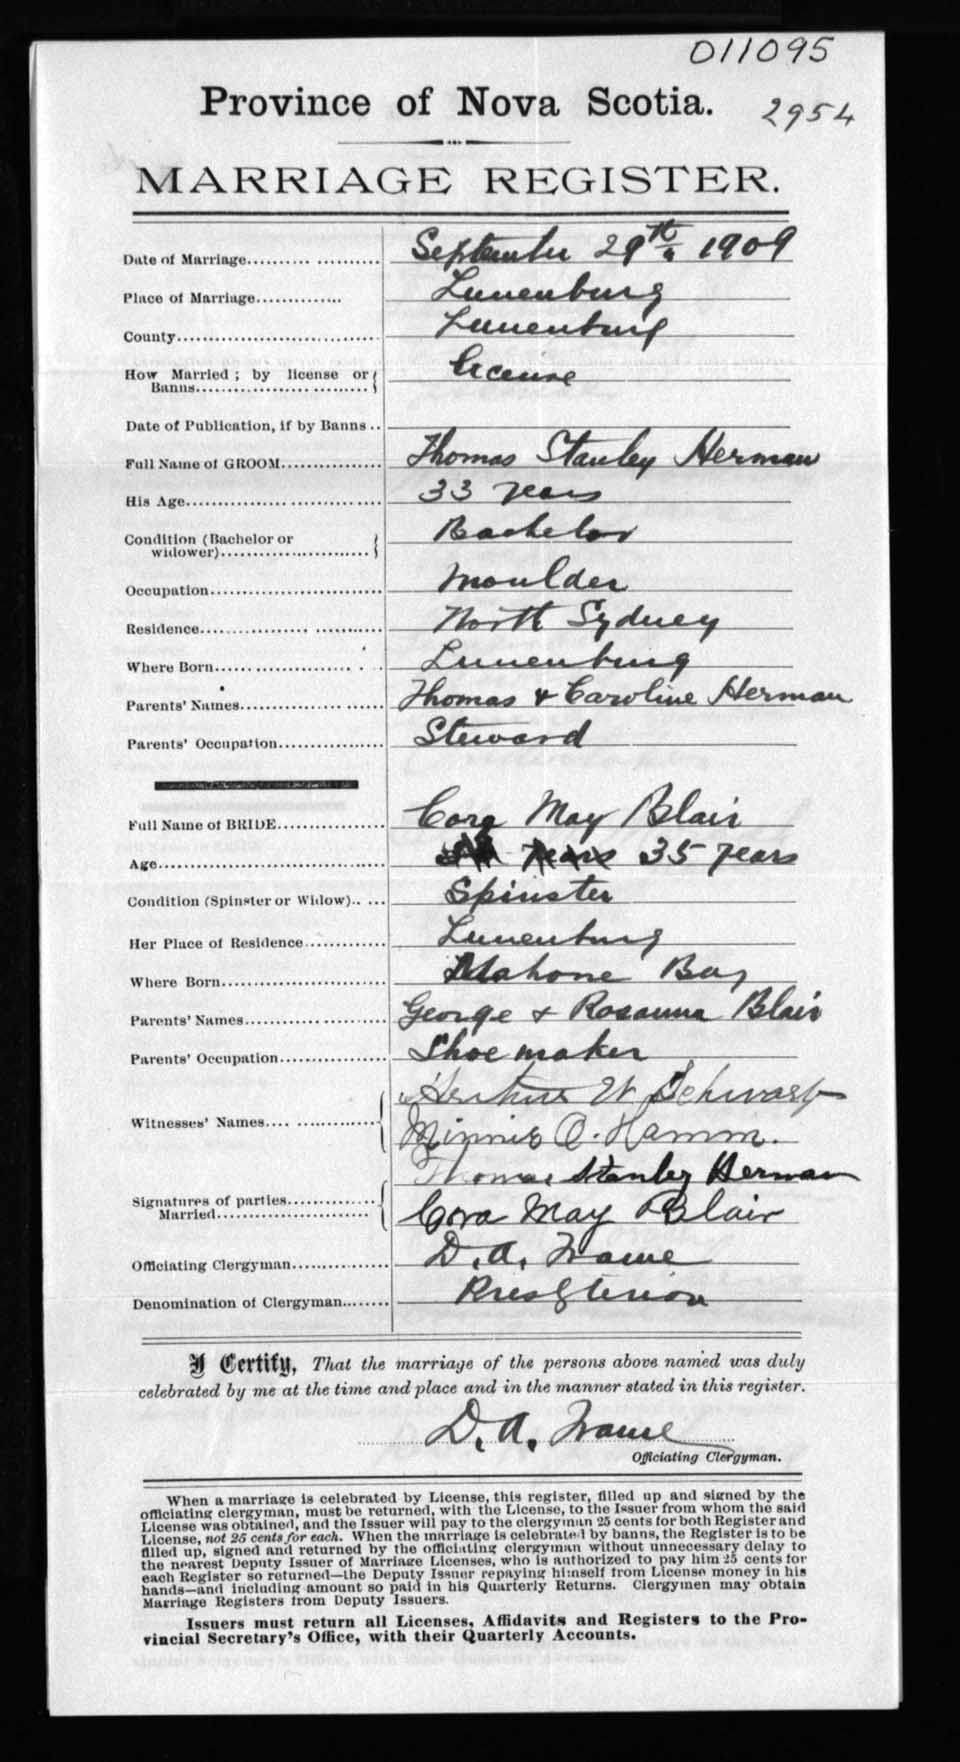 011095
Province of Nova Scotia.
2954
MARRIAGE REGISTER.
Date of Marriage.......... ........... September 29th, 1909
Place of Marriage.............. Lunenburg
County.............................. Lunenburg
How Married ; by license or
Banns........................ License
Date of Publication, if by Banns ..
Full Name of GROOM................ Thomas Stanley Herman
His Age............................. 33 years
Condition (Bachelor or
widower)...................... Bachelor
Occupation......................... Moulder
Residence................ ........... North Sydney
Where Born...... .............. . .. Lunenburg
Parents' Names................ ...... Thomas & Caroline Herman
Parents' Occupation................. Steward
Full Name of BRIDE................. Cora May Blair
Age.................................. years 35 years
Condition (Spinster or Widow).. ... Spinster
Her Place of Residence............. Lunenburg
Where Born......................... Mahone Bay
Parents' Names...................... George & Rosanna Blair
Parents' Occupation................. Shoemaker
W Schwartz
Witnesses' Names.... ............. Minnie O. Hamm.
Thomas Stanley Herman
Signatures of parties..............
Married....................... Cora May Blair
Officiating Clergyman............... D. A. Frame
Denomination of Clergyman........ Presbyterian
I Certify, That the marriage of the persons above named was duly
celebrated by me at the time and place and in the manner stated in this register.
D. A. Frame
Officiating Clergyman.
When a marriage is celebrated by License, this register, filled up and signed by the
officiating clergyman, must be returned, with the License, to the Issuer from whom the said
License was obtained, and the Issuer will pay to the clergyman 25 cents for both Register and
License, not 25 cents for each. When the marriage is celebrated by banns, the Register is to be
filled up, signed and returned by the officiating clergyman without unnecessary delay to
the nearest Deputy Issuer of Marriage Licenses, who is authorized to pay him 25 cents for
each Register so returned—the Deputy Issuer repaying himself from License money in his
hands—and including amount so paid in his Quarterly Returns. Clergymen may obtain
Marriage Registers from Deputy Issuers.
Issuers must return all Licenses, Affidavits and Registers to the Pro-
vincial Secretary's Office, with their Quarterly Accounts.